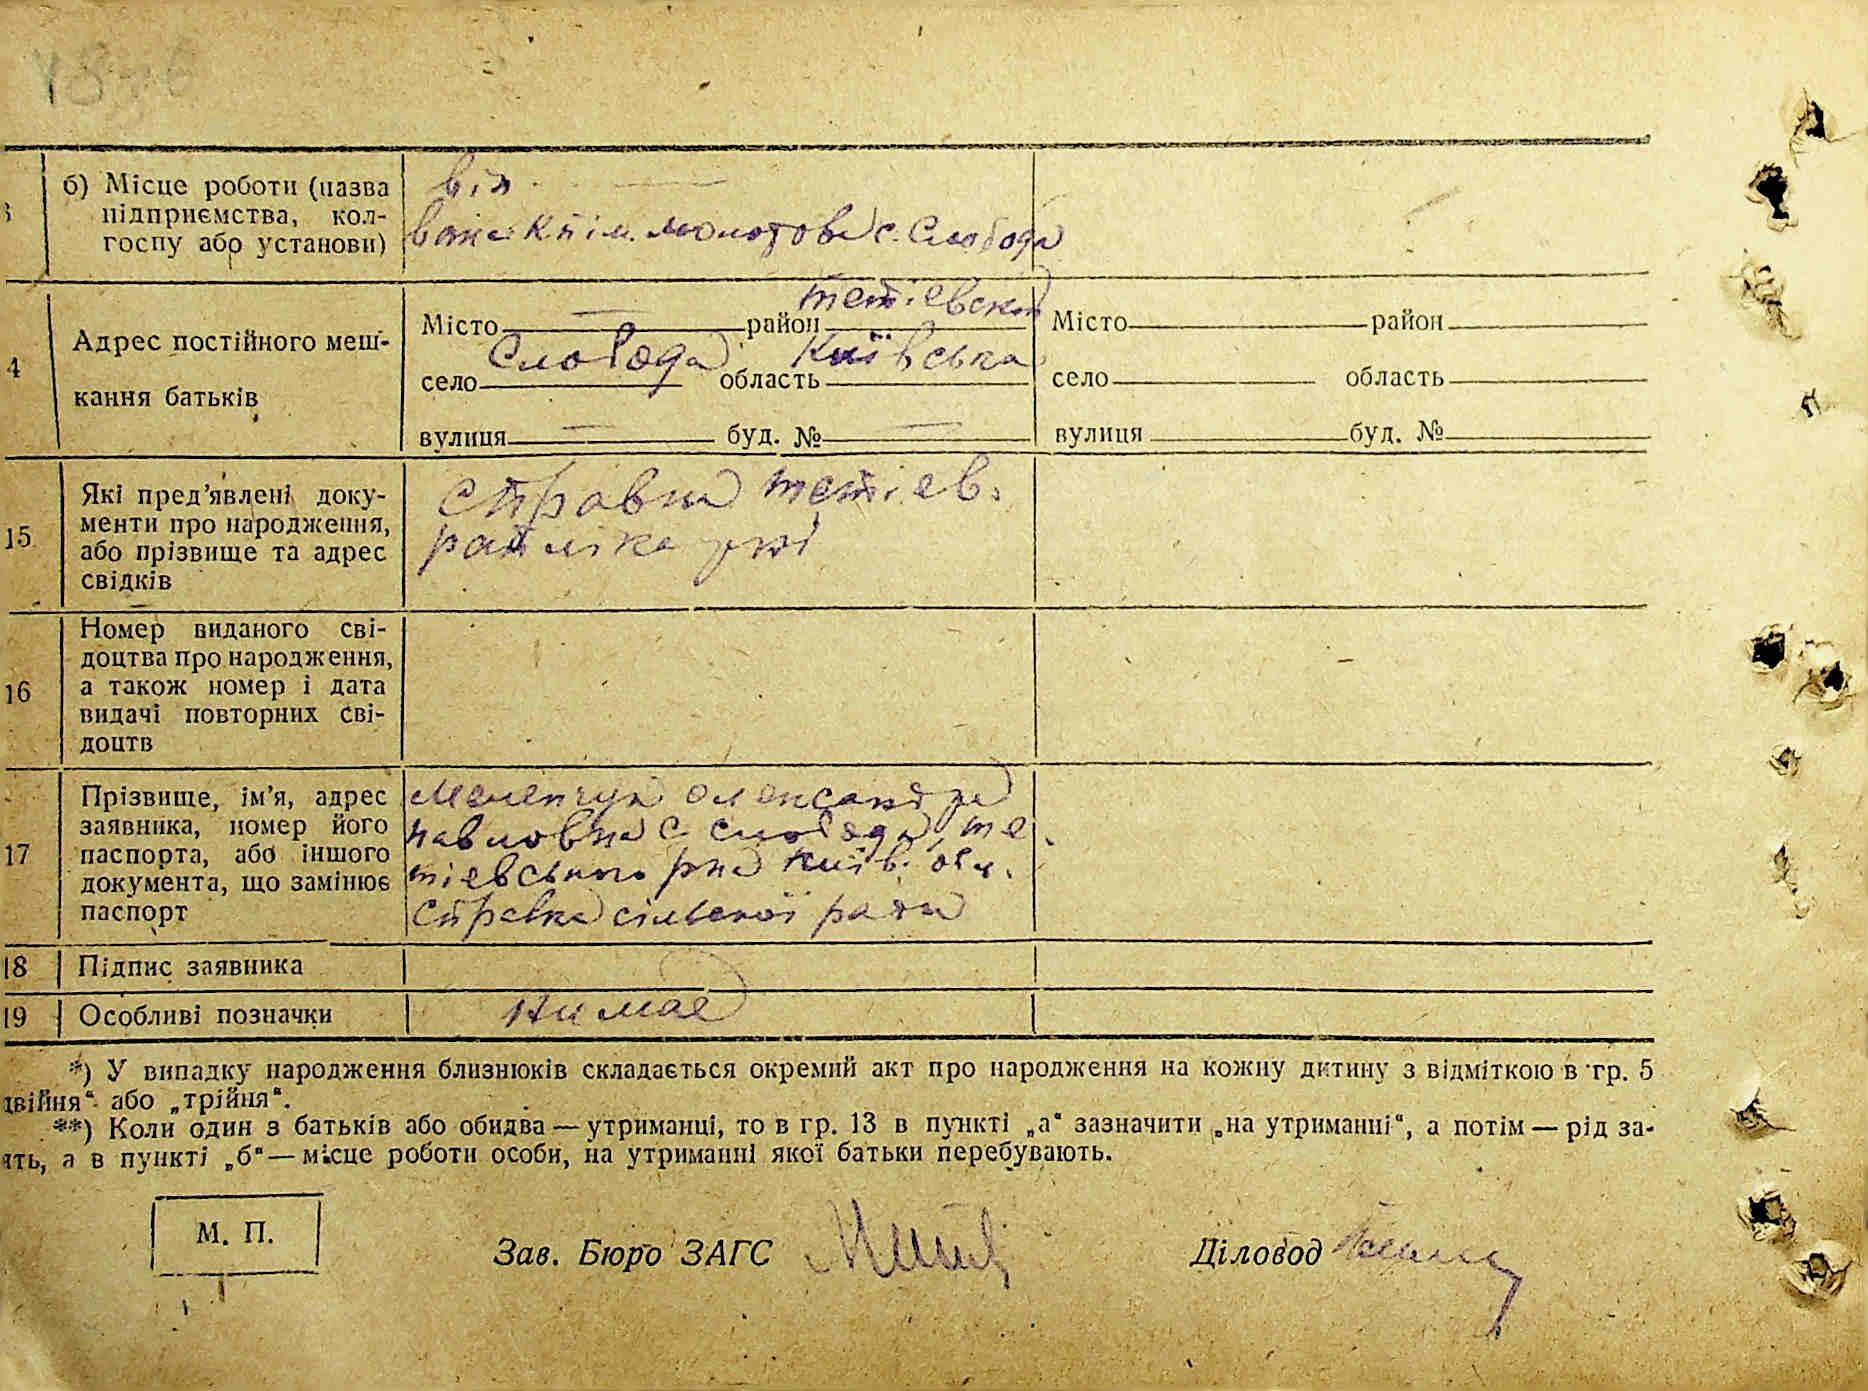 б) Місце роботи (назва
підприємства, кол-
госпу або установи)
він —
вона К п ім. Молотова с. Слобода
4
Адрес постійного меш-
кання батьків
Місто — район Тетіевский
село Слобода область Київська
вулиця — буд. № —
Місто район
село область
вулиця буд. №
15
Які пред’явлені доку-
менти про народження,
або прізвище та адрес
свідків
Справка Тетіев.
16
Номер виданого сві-
доцтва про народження,
а також номер і дата
видачі повторних сві-
доцтв
17
Прізвище, ім’я, адрес
заявника, номер його
паспорта, або іншого
документа, що замінює
паспорт
Олександра
Павловна с. Слобода, Те
тіевського рна Київ. обл.
Справка сільської ради
18 Підпис заявника
19 Особливі позначки
Нимає
*) У випадку народження близнюків складається окремий акт про народження на кожну дитину з відміткою в гр. 5
двійня“ або „трійня“.
**) Коли один з батьків або обидва — утриманці, то в гр. 13 в пункті „а“ зазначити „на утриманні“, а потім — рід за-
ять, а в пункті „б“ — місце роботи особи, на утриманні якої батьки перебувають.
М. П.
Зав. Бюро ЗАГС
Діловод